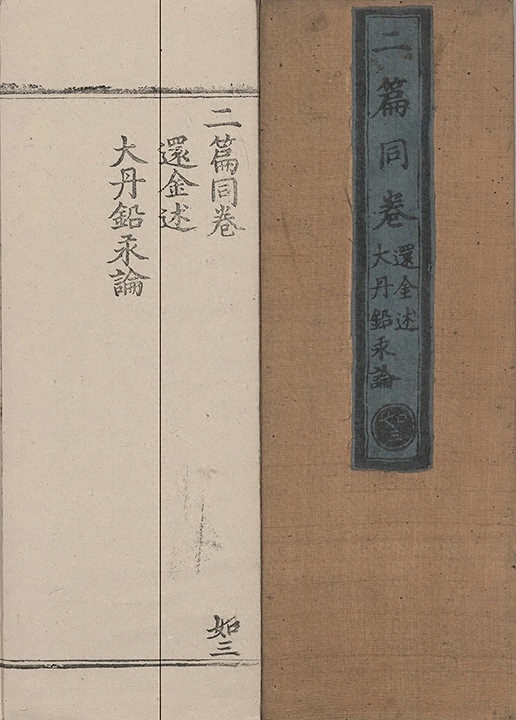 二篇同卷
還金述
大丹鉛汞論
如三
二篇同卷
還金述
大丹鉛汞論
如三